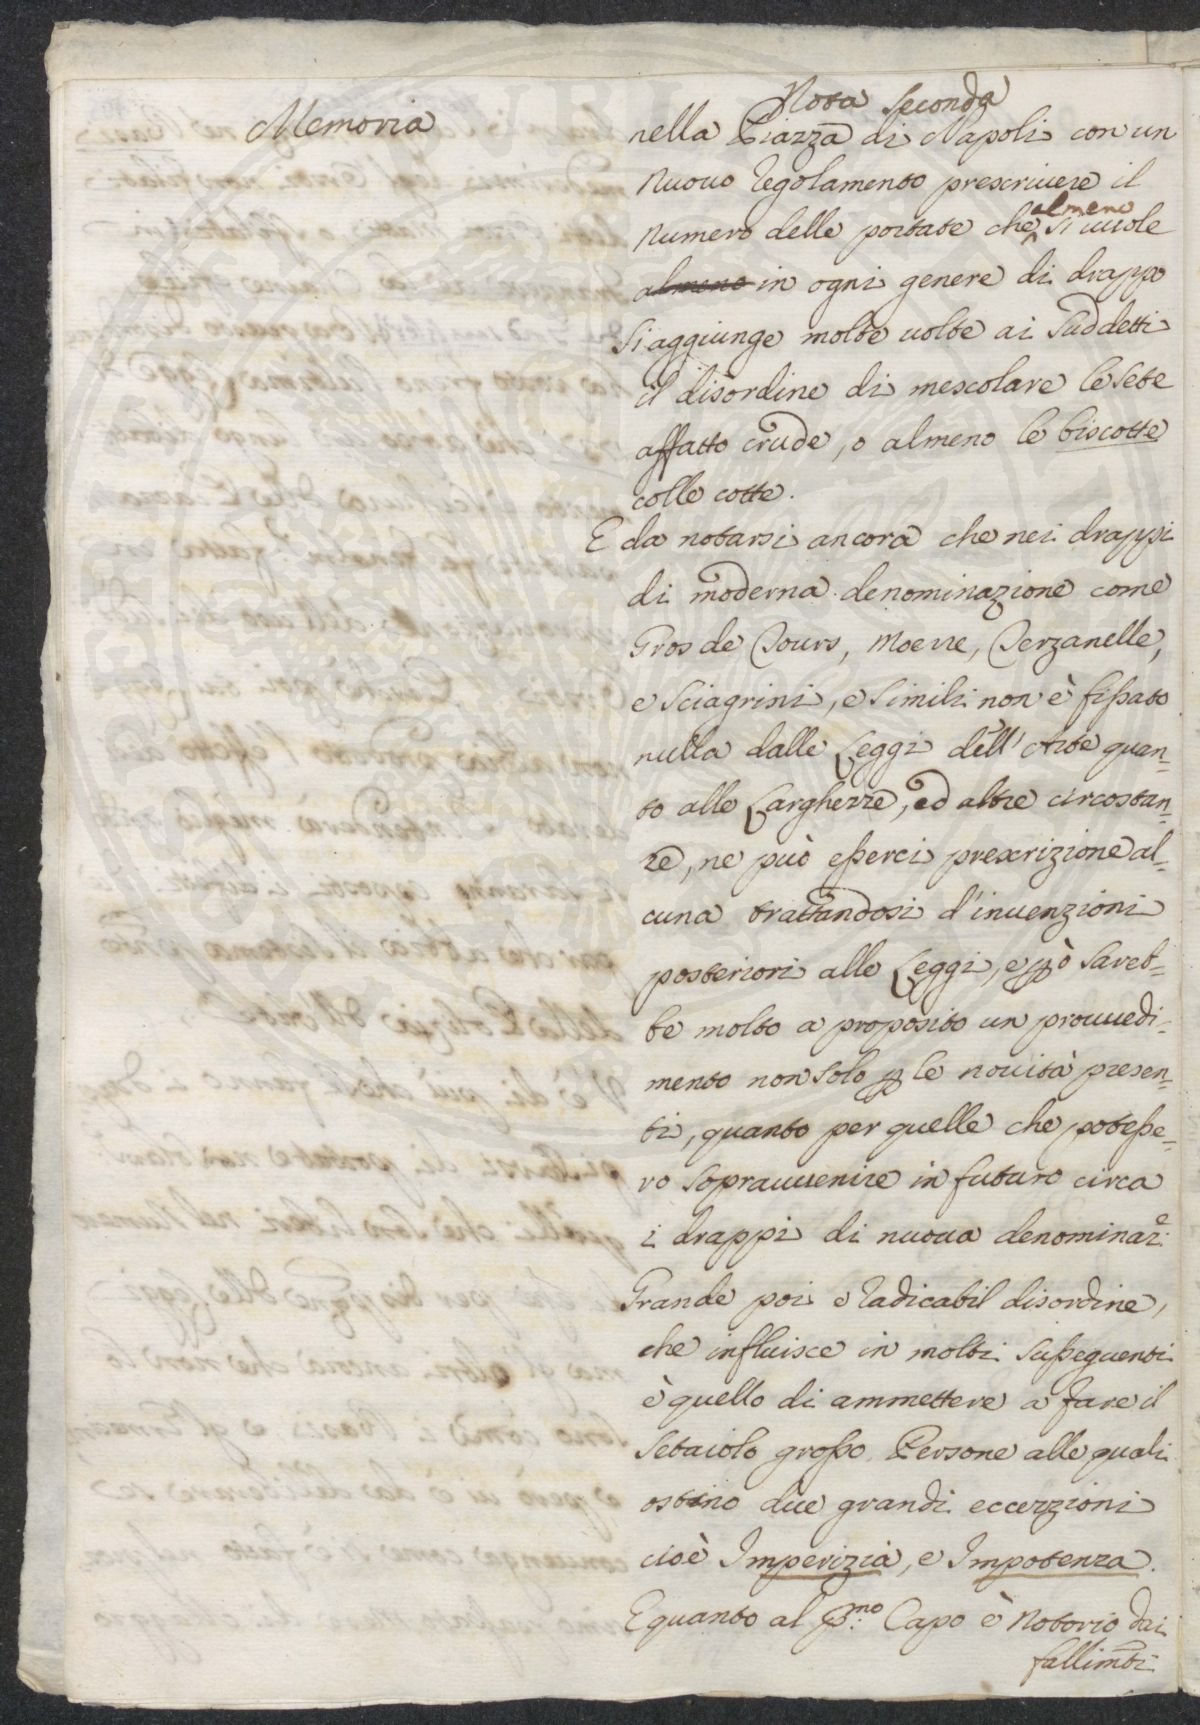 Memoria
Nota Seconda
nella Piazza di Napoli con un
nuovo regolamento prescrivere il
numero delle portate che almeno si vuole
almeno in ogni genere di drappo
Si aggiunge molte volte ai suddetti
il disordine di mescolare le sete
affatto crude, o almeno le biscotte
colle cotte.
E da notarsi ancora che nei drappi
di moderna denominazione come
Gros de Tours, Moerre, Terzanelle,
e Sciagrini, e simili non è fissato
nulla dalle Leggi dell' Arte quan=
to alle Larghezze, ed altre circostan=
ze, ne può esserci prescrizione al=
cuna trattandosi d'invenzioni
posteriori alle Leggi, e pò sareb=
be molto a proposito un provvedi=
mento non solo p le novità presen=
ti, quanto per quelle che potesse=
ro sopravvenire in futuro circa
i drappi di nuova denominaz.e
Grande poi e radicabil disordine,
che influisce in molti susseguenti
è quello di ammettere a fare il
Setaiolo grosso Persone alle quali
ostino due grandi eccezzioni
cioè Imperizia, e Impotenza.
E quanto al P:mo Capo è notorio dai
fallimti